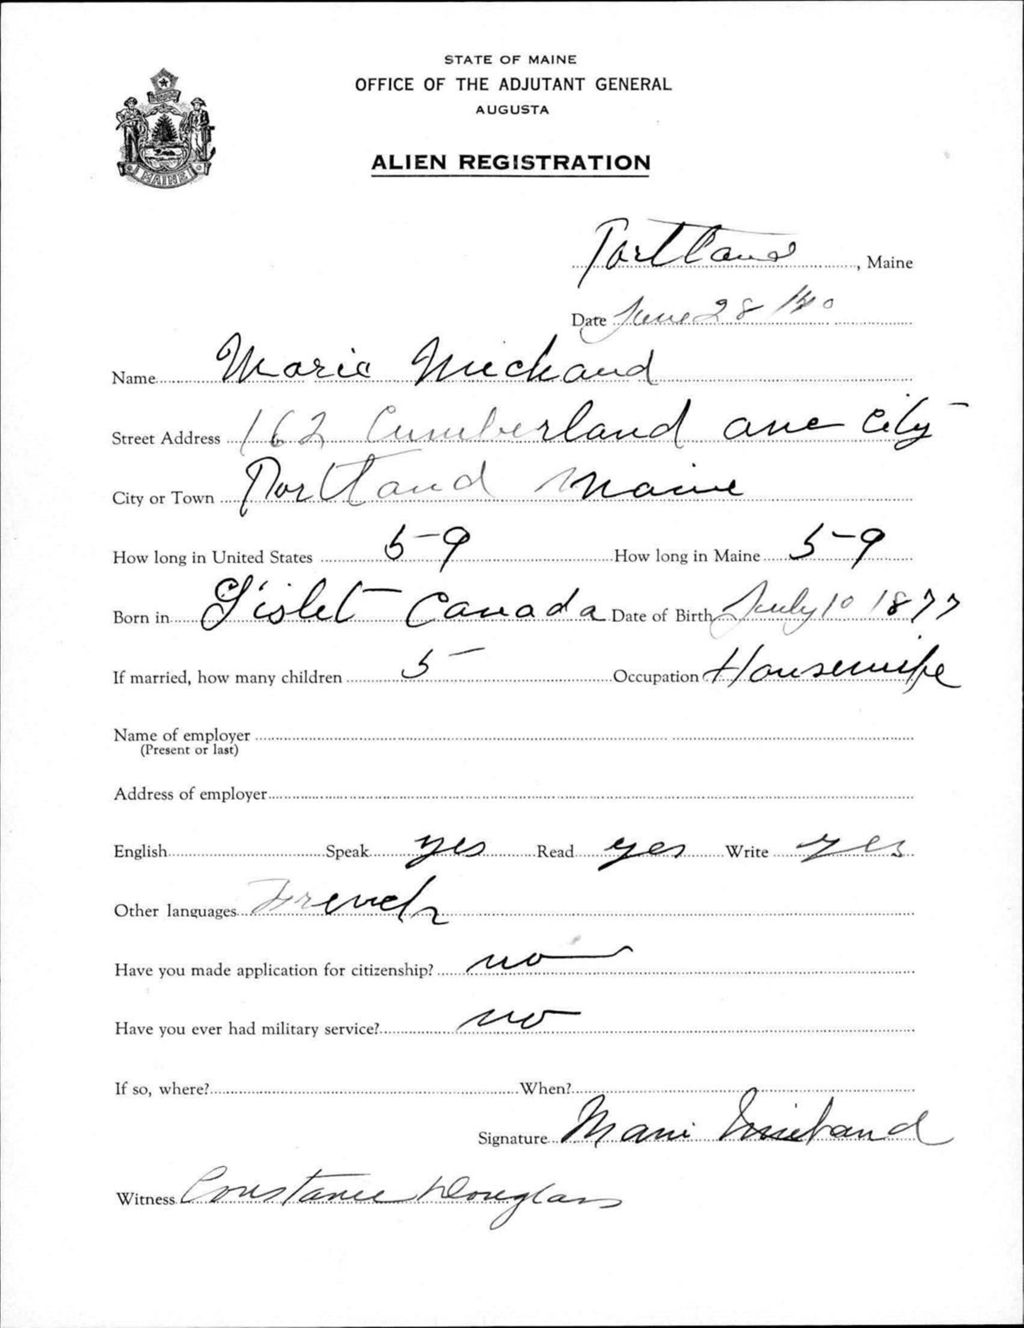 STATE OF MAINE
OFFICE OF THE ADJUTANT GENERAL
AUGUSTA
ALIEN REGISTRATION
MAINE
Portland, Maine
Date June 28 1940
Name Marie Michaud
Street Address 162 Cumberland ave City
City or Town Portland Maine
How long in United States 59 How long in Maine 59
Born in L'islet Canada Date of Birth July 10 1877
If married, how many children 5 Occupation Housewife
Name of employer
(Present or last)
Address of employer
English Speak yes Read yes Write yes
Other languages French
Have you made application for citizenship? no
Have you ever had military service? no
If so, where? When?
Signature Marie Michaud
Witness Constance Douglass